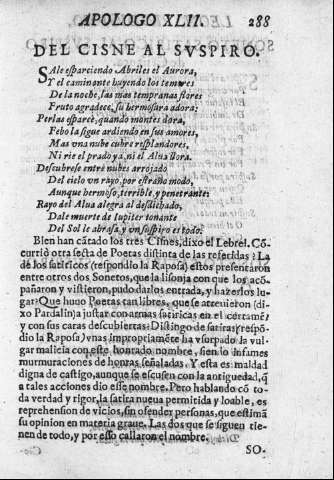 APOLOGO XLII. 288
DEL CISNE AL SVSPIRO.
SAle esparciendo Abriles el Aurora,
Y el caminante huyendo los temores
De la noche, las mas tempranas flores
Fruto agradece, su hermosura adora;
Perlas esparce, quando montes dora,
Febo la sigue ardiendo en sus amores,
Mas vna nube cubre resplandores,
Ni rie el prado ya, ni el Alua llora.
Descubrese entre nubes arrojado
Del cielo vn rayo, por estraño modo,
Aunque hermoso, terrible, y penetrante;
Rayo del Alua alegra al desdichado,
Dale muerte de Iupiter tonante
Del Sol le abrasa, y vn sospiro es todo.
Bien han cãtado los tres Cisnes, dixo el Lebrel. Cõ-
currió otra secta de Poetas distinta de las referidas? La
de los satiricos (respondio la Raposa) estos presentaron
entre otros dos Sonetos, que la lisonja con que los acõ-
pañaron y vistieron, pudo darlos entrada, y hazerlos lu-
gar. Que huuo Poetas tan libres, que se atreuieron (di-
xo Pardalin) a justar con armas satiricas en el certamẽ?
y con sus caras descubiertas? Distingo de satiras (respõ-
dio la Raposa) vnas impropriamẽte ha vsurpado la vul-
gar malicia con este honrado nombre, siendo infames
murmuraciones de honras señaladas. Y esta es maldad
digna de castigo, aunque se escusen con la antiguedad, q̃
a tales acciones dio esse nombre. Pero hablando cõ to-
da verdad y rigor, la satira nueua permitida y loable, es
reprehension de vicios, sin ofender personas, que estima
su opinion en materia graue. Las dos que se siguen tie-
nen de todo, y por esso callaron el nombre.
SO-